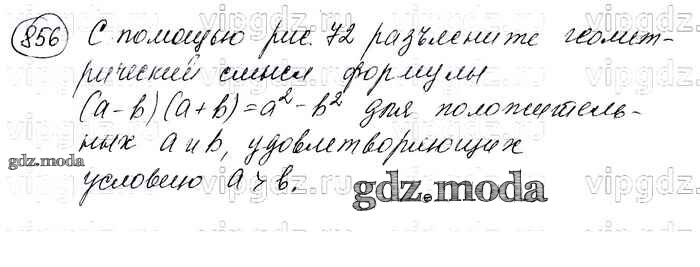 856 С помощью рис. 72 разъясните геомет-
рический смысл формулы
(а-в)(а+в)=а²-в² для положитель-
ных а и в, удовлетворяющих
условию а > в.
gdz.moda
gdz.moda
vipgdz.ru